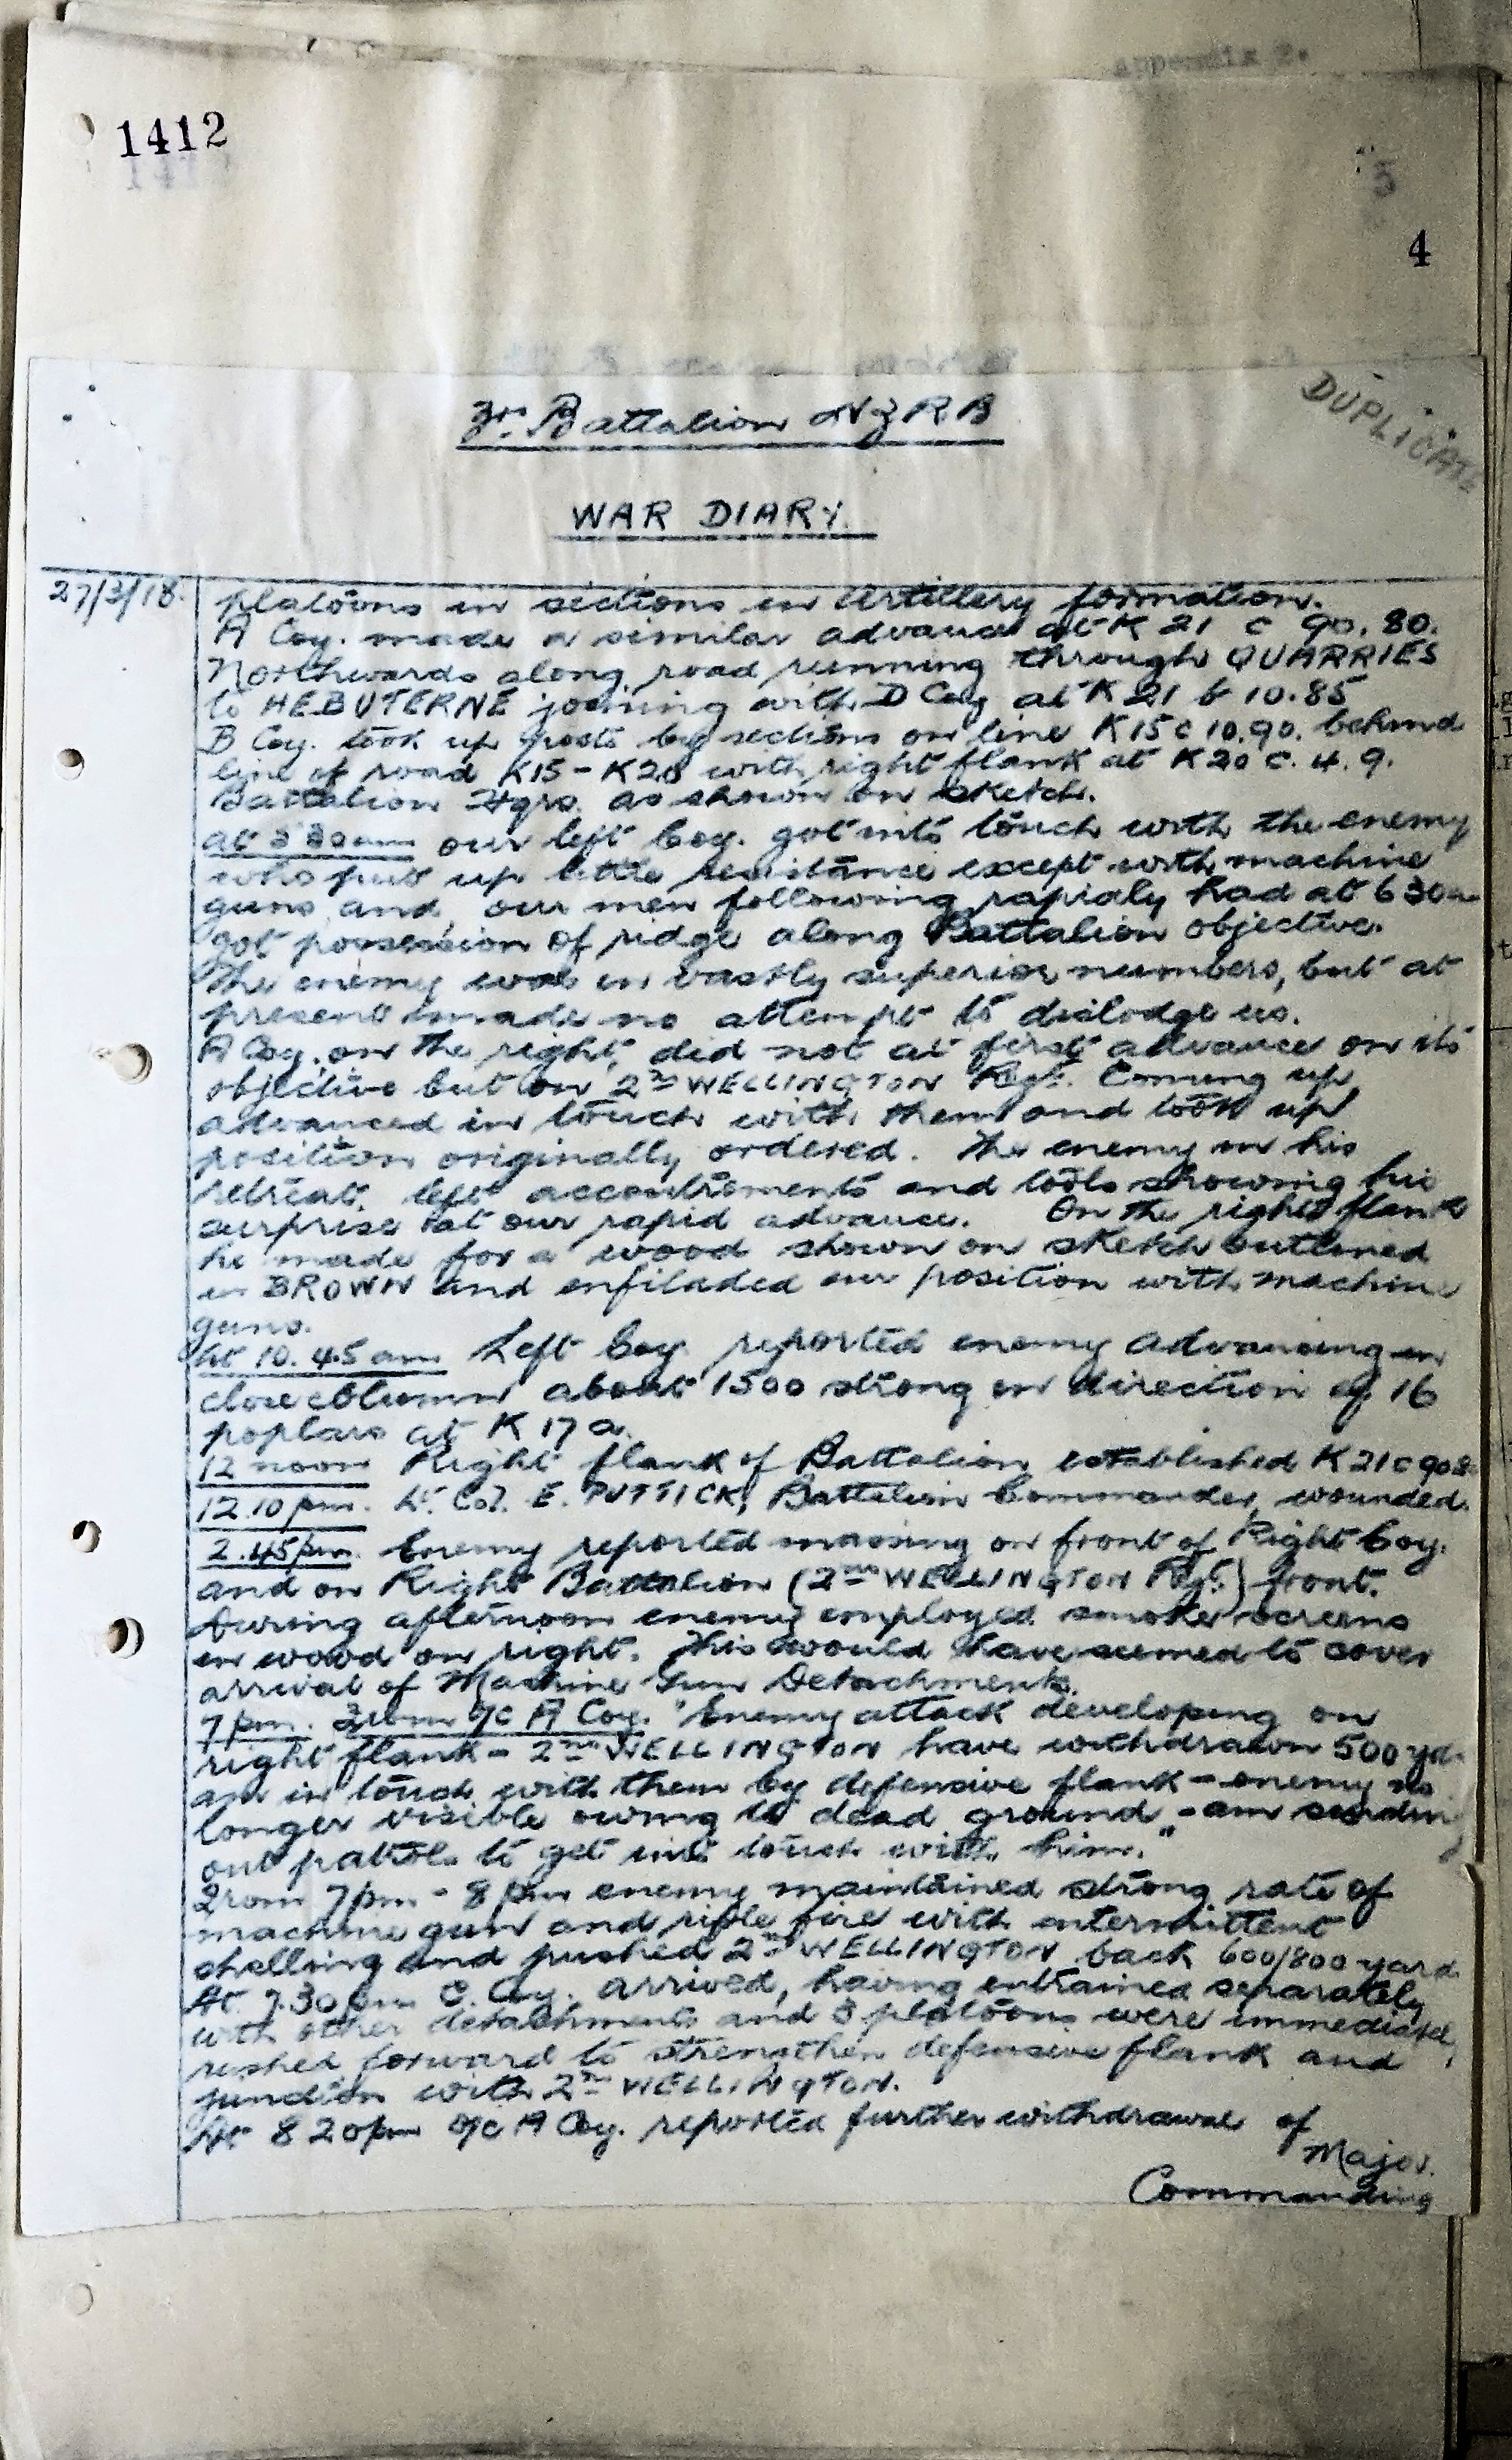 appendix 2.
1412
5
4
DUPLICATE
3rd Battalion N Z R B
WAR DIARY.
27/3/18. platoons in sections in Artillery formation.
A Coy. made a similar advance at K 21 c 90.80.
Northwards along road running through QUARRIES
to HEBUTERNE joining with D Coy at K 21 b 10.85
B Coy. took up posts by sections on line K15 c 10.90. behind
line of road K15 - K20 with right flank at K20 c. 4. 9.
Battalion Hqrs. as shown on sketch.
at 3 30am our left Coy. got into touch with the enemy
who put up little resistance except with machine
guns and our men following rapidly had at 6 30am
got possession of ridge along Battalion objective.
The enemy was in vastly superior numbers, but at
present made no attempt to dislodge us.
A Coy. on the right, did not at first advance on its
objective but on 2nd WELLINGTON Regt. Coming up
advanced in touch with them and took up
position originally ordered. The enemy in his
retreat left accoutrements and tools showing his
surprise at our rapid advance. On the right flank
he made for a wood shown on sketch outlined
in BROWN and enfiladed our position with machine
guns.
At 10.45 am Left Coy reported enemy advancing in
close column about 1500 strong in direction of 16
poplars at K 17 a.
12 noon Right flank of Battalion established K 21 c 90.8
12.10 pm. Lt. Col. E. PUTTICK, Battalion Commander, wounded.
2.45 pm. Enemy reported massing on front of Right Coy.
and on Right Battalion (2nd WELLINGTON Regt.) front.
During afternoon enemy employed smoke screens
in wood on right. This would have seemed to cover
arrival of Machine Gun Detachments.
7 pm. From O/C A Coy. "Enemy attack developing on
right flank - 2nd WELLINGTON have withdrawn 500 yds
am in touch with them by defensive flank - enemy no
longer visible owing to dead ground - am sending
out patrols to get into touch with him."
From 7pm - 8 pm enemy maintained strong rate of
machine gun and rifle fire with intermittent
shelling and pushed 2nd WELLINGTON back 600/800 yards
At 7.30 pm C. Coy. arrived, having entrained separately
with other detachments and 3 platoons were immediately
rushed forward to strengthen defensive flank and
junction with 2nd WELLINGTON.
At 8 20pm O/c A Coy. reported further withdrawal of
Major.
Commanding